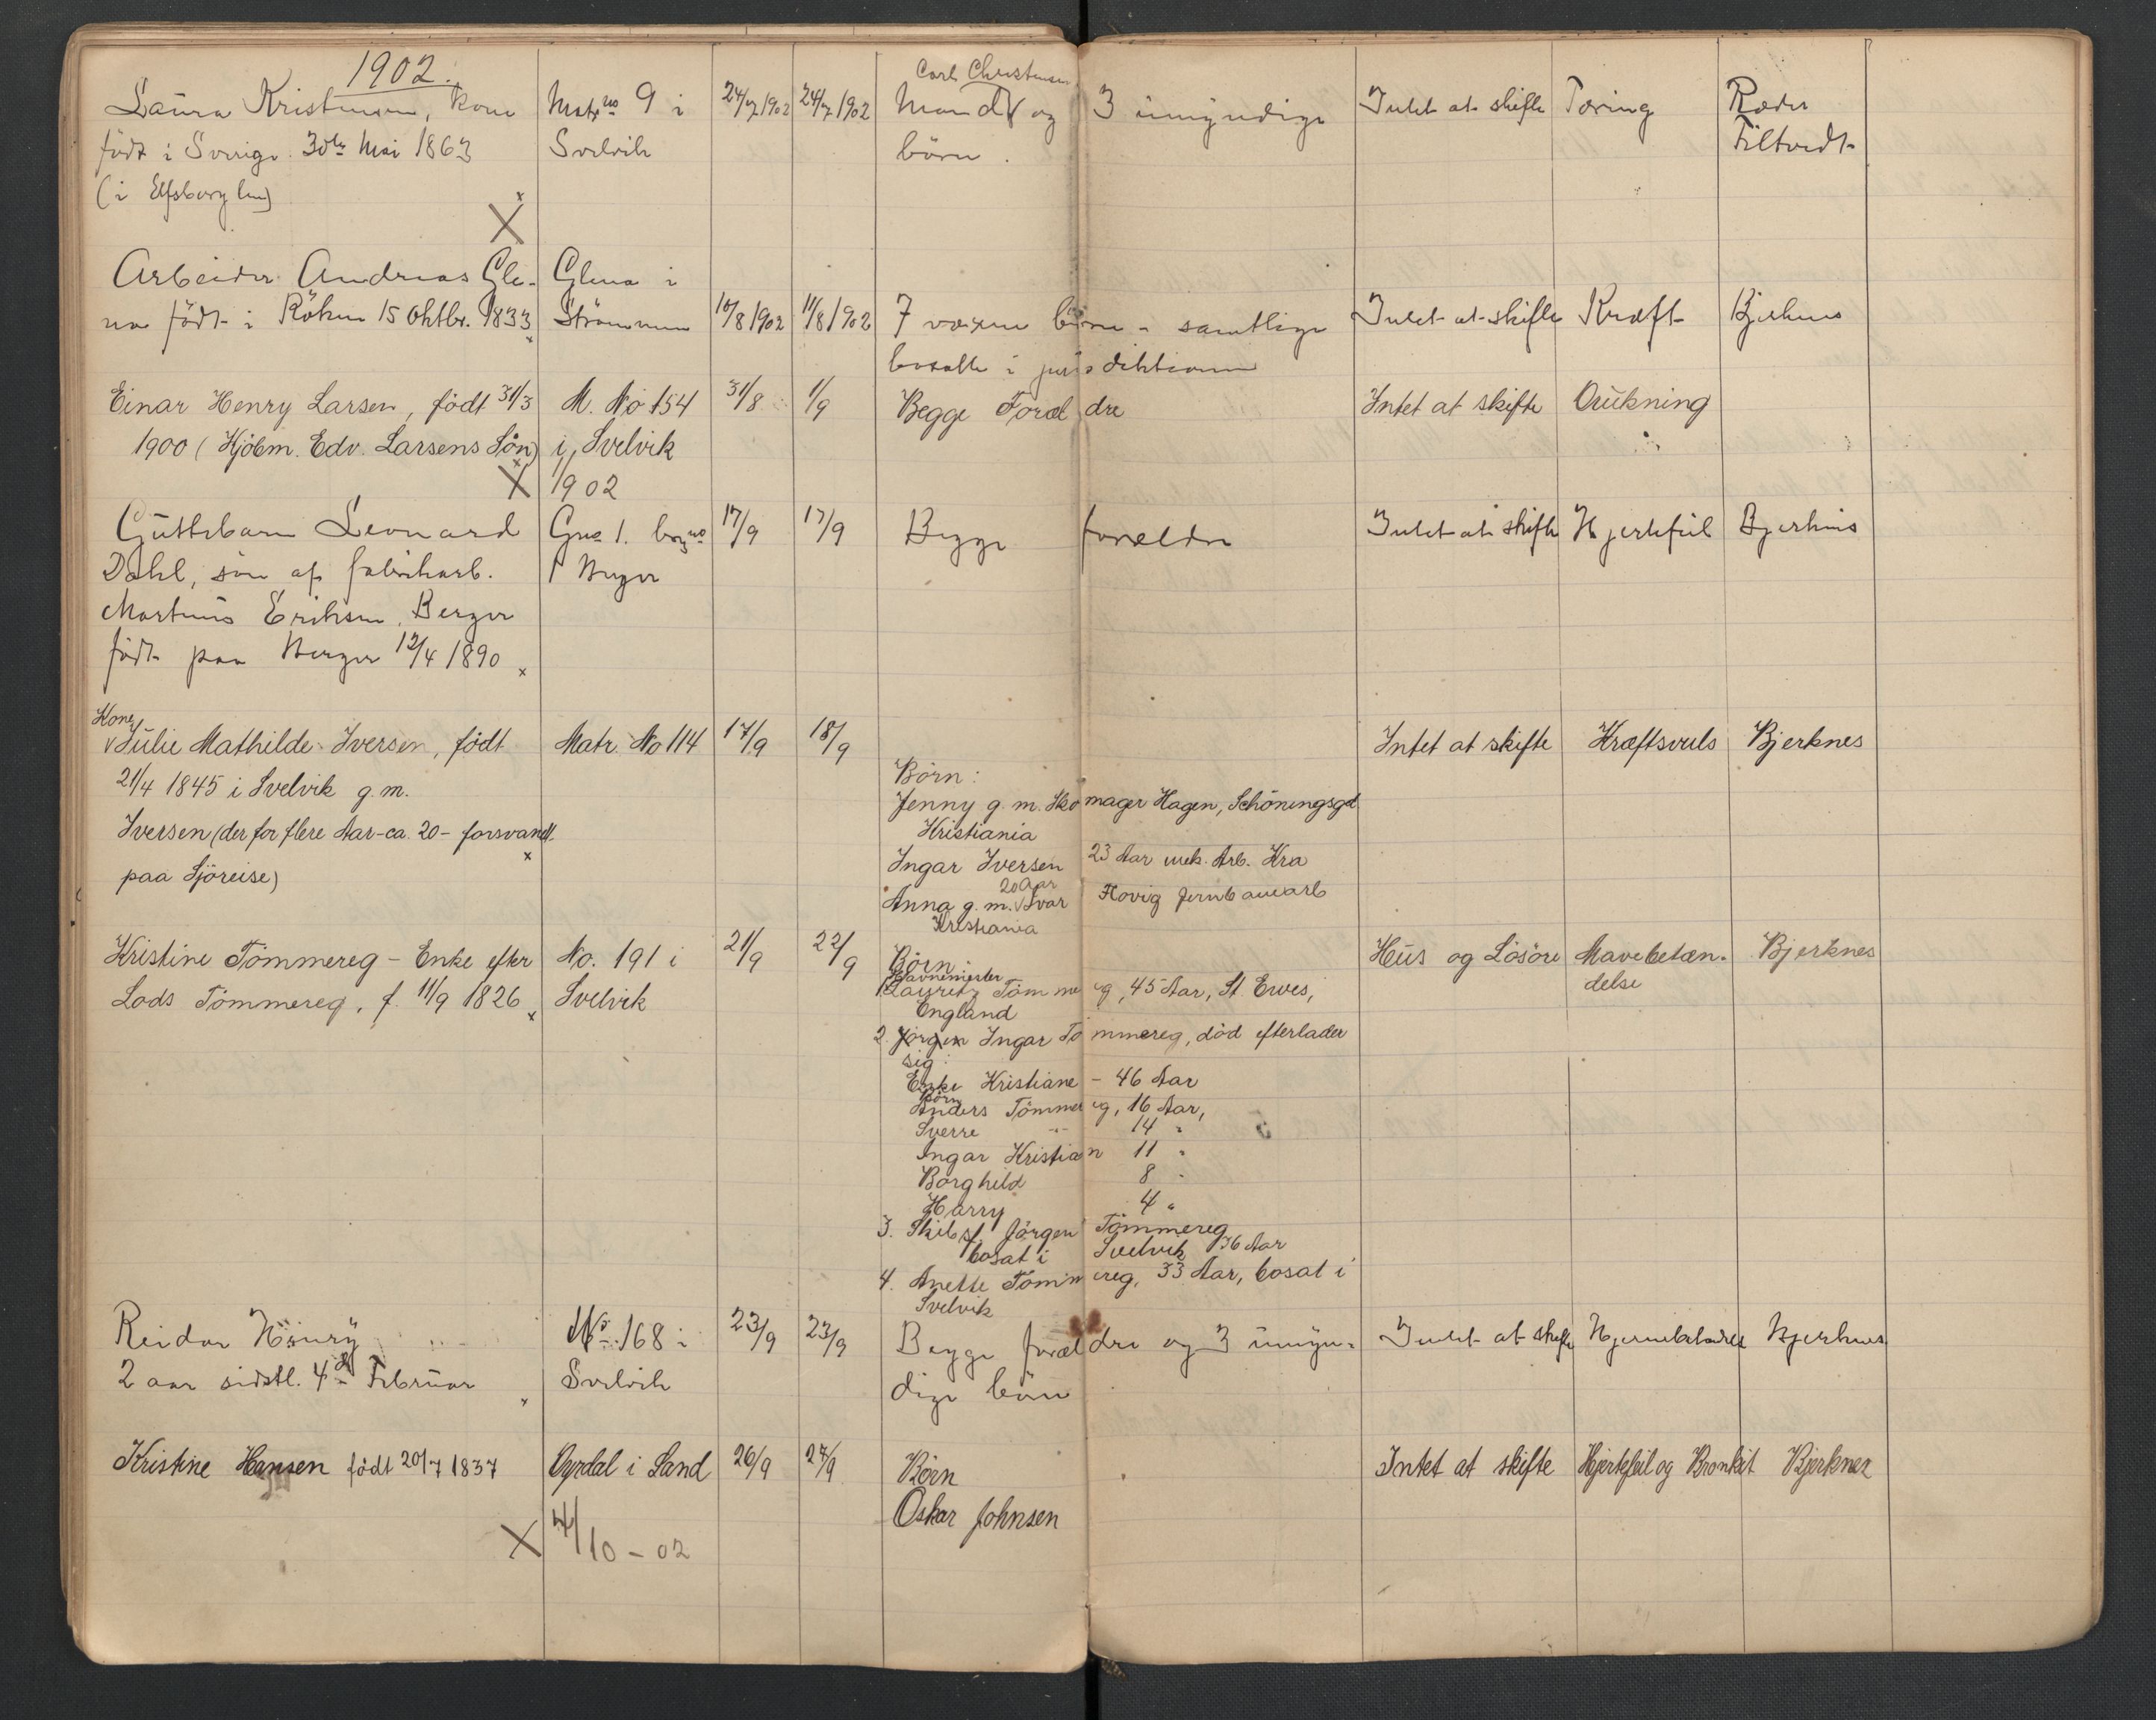 1902.
Laura Kristensen, kone
født i Sverige 30te Mai 1863
(i Elfsborg len)
Matr no 9 i
Svelvik
24/7 1902
24/7 1902
Carl Christensen
Mand og 3 umyndige
børn.
Intet at skifte
Tæring
Ræder
Filtvedt
X
Arbeider Andreas Gle-
na født i Röken 15 Oktbr. 1833
Glena i
Strömmen
10/8 1902
11/8 1902
7 voxne börn - samtlige
bosatte i jurisdiktionen
Intet at skifte
Kræft
Bjerknes
Einar Henry Larsen, født 31/3
1900 (Kjöbm. Edv. Larsens Sön)
M. No 154
i Svelvik
31/8
1/9
Begge Foræl dre
Intet at skifte
Drukning
X 1/9 02
Guttebarn Leonard
Dahl, sön af fabrikarb.
Martinus Eriksen, Berger
født paa Berger 12/4 1890
Gno 1. brgno
1 Berger
17/9
17/9
Begge forældre
Intet at skifte
Hjertefeil
Bjerknes
Kone
Julie Mathilde Iversen, født
21/4 1845 i Svelvik g.m.
Iversen (der for flere Aar - ca. 20 - forsvandt
paa Sjöreise)
Matr. No 114
17/9
18/9
Börn:
Jenny g. m. Skomager Hagen, Schöningsgd
Kristiania
Ingar Iversen 23 Aar mek. Arb. Kra
20 Aar
Anna g. m. Ivar Hovig Jernbanearb
Kristiania
Intet at skifte
Kræftsvuls
Bjerknes
Kristine Tömmereg - Enke efter
Lods Tömmereg, f. 11/9 1826
No. 191 i
Svelvik
21/9
22/9
Börn:
Havnemester
1 Lauritz Tömmereg, 45 Aar, St Erves,
England
2. Jörgen Ingar Tömmereg, död efterlader
sig:
Enke Kristiane - 46 Aar
Börn
Anders Tömmereg, 16 Aar,
Sverre " 14 "
Ingar Kristian 11 "
Borghild 8 "
Harry 4 "
3. Skibsf Jörgen Tömmereg
bosat i Svelvik 36 Aar
4. Anette Tömmereg, 33 Aar, bosat i
Svelvik
Hus og Lösöre
Mavebetæn-
delse
Bjerknes
Reidar Henry
2 aar sidstl. 4de Februar
No 168 i
Svelvik
23/9
23/9
Begge forældre og 3 umyn-
dige börn
Intet at skifte
Bjerknes
Kristine Hansen født 20/7 1837
Oyrdal i Sand
26/9
27/9
Börn
Oskar Johnsen
Intet at skifte
Hjertefeil og Bronkit
Bjerknes
X 4/10 - 02